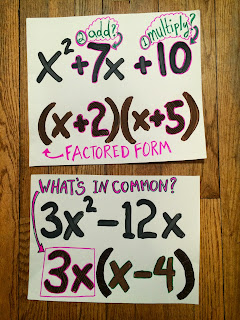 ② add? ① multiply?
x²+7x+10
(x+2)(x+5)
FACTORED FORM
WHAT'S IN COMMON?
3x²-12x
3x(x-4)